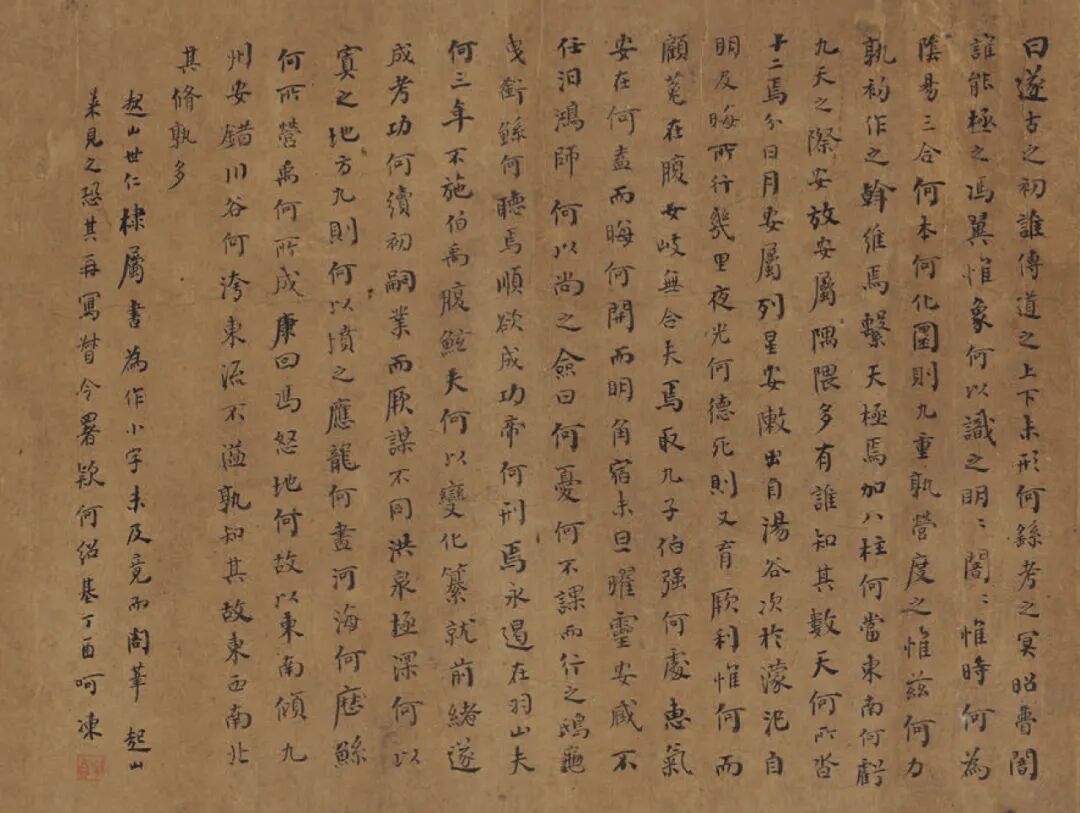 曰遂古之初誰傳道之上下未形何繇考之冥昭瞢闇
誰能極之馮翼惟象何以識之明〻闇〻惟時何為
陰昜三合何本何化圜則九重孰營度之惟茲何力
孰初作之斡維焉繫天極焉加八柱何當東南何虧
九天之際安放安屬隅隈多有誰知其數天何所沓
十二焉分日月安屬列星安敶出自湯谷次於濛汜自
明及晦所行幾里夜光何德死則又育厥利惟何而
顧菟在腹女岐無合夫焉取九子伯强何處惠氣
安在何盍而晦何開而明角宿未旦曜靈安臧不
任汩鴻師何以尚之僉曰何憂何不課而行之鴟龜
曳銜鯀何聽焉順欲成功帝何刑焉永遏在羽山夫
何三年不施伯禹腹鮌夫何以變化纂就前緒遂
成考功何續初嗣業而厥謀不同洪泉極深何以
寘之地方九則何以墳之應龍何畫河海何歷鯀
何所營禹何所成康回馮怒地何故以東南傾九
州安錯川谷何洿東流不溢孰知其故東西南北
其脩孰多
起山世仁棣屬書為作小字未及竟而閣筆起山
來見之恐其再寫今署款何紹基丁酉呵凍